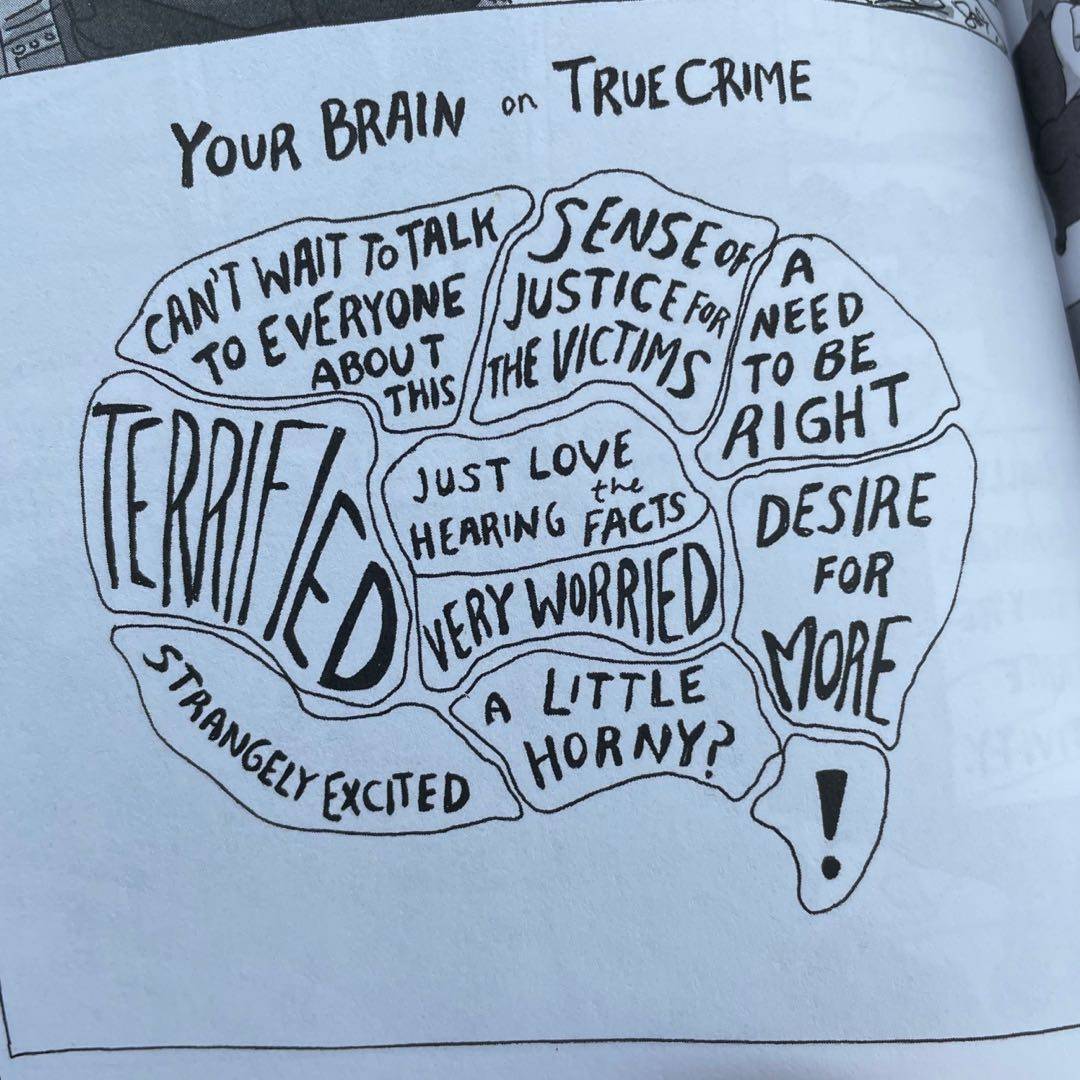 YOUR BRAIN on TRUE CRIME
CAN'T WAIT TO TALK
TO EVERYONE
ABOUT
THIS
SENSE OF
JUSTICE FOR
THE VICTIMS
A
NEED
TO BE
RIGHT
TERRIFIED
JUST LOVE
HEARING the FACTS
VERY WORRIED
DESIRE
FOR
MORE
STRANGELY EXCITED
A LITTLE
HORNY?
!